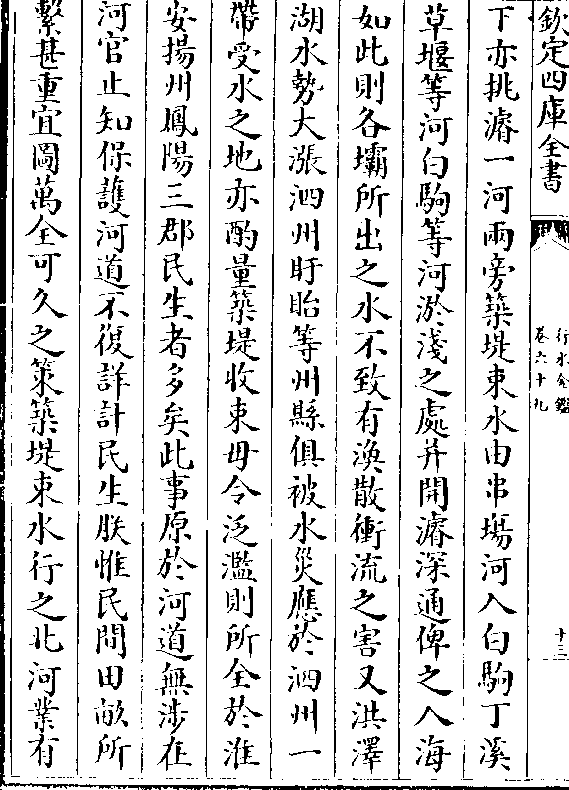 欽定四庫全書
行水金鑑
卷六十九
十三
下亦挑濬一河兩旁築堤束水由串塲河入白駒丁溪
草堰等河白駒等河淤淺之處并開濬深通俾之入海
如此則各壩所出之水不致有渙散衝流之害又洪澤
湖水勢大漲泗州盱眙等州縣俱被水災應於泗州一
帶受水之地亦酌量築堤收束毋令泛濫則所全於淮
安揚州鳳陽三郡民生者多矣此事原於河道無涉在
河官止知保護河道不復詳計民生朕惟民間田畝所
繫甚重宜圖萬全可久之策築堤束水行之北河業有